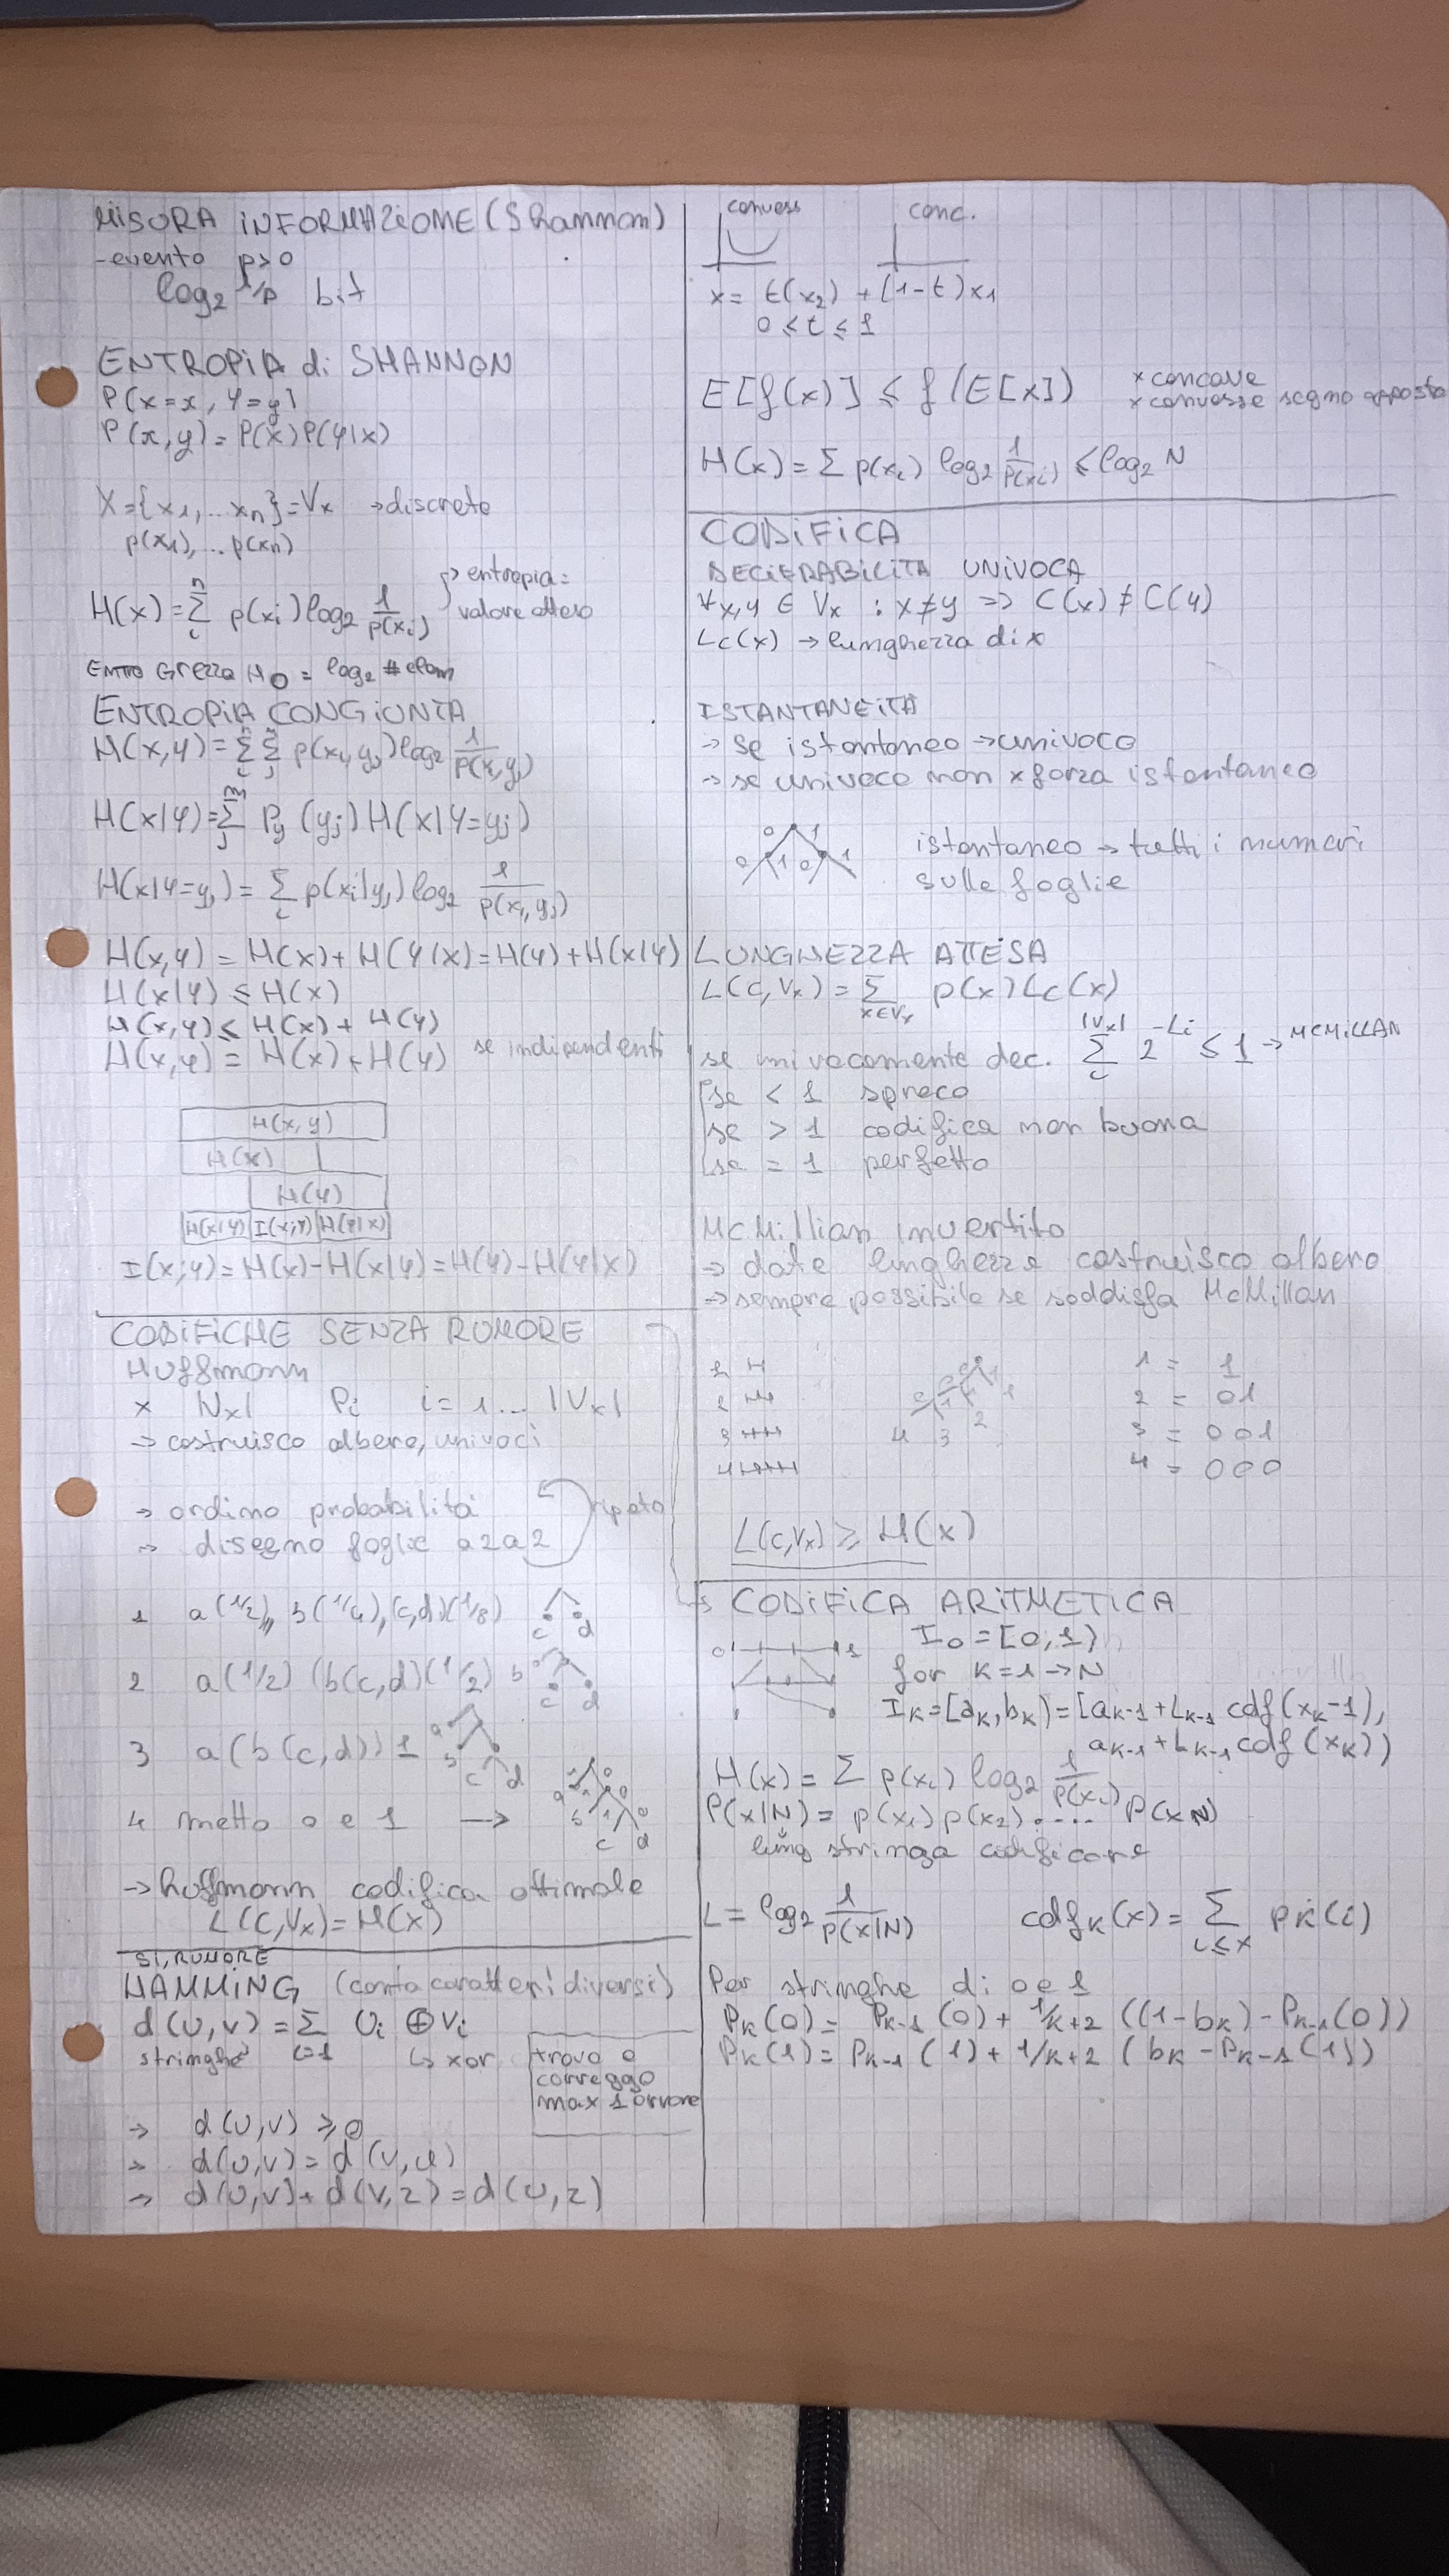 MISURA INFORMAZIONE (Shannon)
- evento p>0
log₂ 1/p bit
ENTROPIA di SHANNON
P(X=x, Y=y)
P(x,y) = P(x)P(y|x)
X={x₁,... xₙ}=Vx →discreto
p(x₁),... p(xₙ)
H(x) = Σᵢⁿ p(xᵢ) log₂ 1/p(xᵢ) → entropia = valore atteso
ENTRO Grezza H₀ = log₂ # elem
ENTROPIA CONGIUNTA
H(x,y) = Σᵢⁿ Σⱼ p(xᵢ,yⱼ) log₂ 1/p(xᵢ,yⱼ)
H(x|y) = Σⱼᵐ Py (yⱼ) H(x|Y=yⱼ)
H(x|Y=yⱼ) = Σᵢ p(xᵢ|yⱼ) log₂ 1/p(xᵢ,yⱼ)
H(x,y) = H(x) + H(y|x) = H(y) + H(x|y)
H(x|y) ≤ H(x)
H(x,y) ≤ H(x) + H(y)
H(x,y) = H(x) + H(y) se indipendenti
H(x,y)
H(x)
H(y)
H(x|y) I(x;y) H(y|x)
I(x;y) = H(x) - H(x|y) = H(y) - H(y|x)
CODIFICHE SENZA RUMORE
Huffmann
x |Vx| Pi i = 1 ... |Vx|
→ costruisco albero, univoci
→ ordino probabilità
→ disegno foglie a 2 a 2
ripeto
1 a(1/2), b(1/4), (c,d)(1/8) c d
2 a(1/2) (b(c,d)(1/2) b c d
3 a(b(c,d)) 1 a b c d
4 metto 0 e 1 → a b c d
→ huffmann codifica ottimale
L(C,Vx) = H(x)
SI, RUMORE
HAMMING (conta caratteri diversi)
d(u,v) = Σᵢ₌₁ Uᵢ ⊕ Vᵢ
stringhe ↳ xor
trovo e
correggo
max 1 errore
→ d(u,v) ≥ 0
→ d(u,v) = d(v,u)
→ d(u,v) + d(v,z) = d(u,z)
convess conc.
x = t(x₂) + (1-t)x₁
0 ≤ t ≤ 1
E[f(x)] ≤ f(E[x]) x concave
x convesse segno opposto
H(x) = Σ p(xᵢ) log₂ 1/p(xᵢ) ≤ log₂ N
CODIFICA
DECIFRABILITA UNIVOCA
∀x,y ∈ Vx : x≠y => C(x) ≠ C(y)
Lc(x) → lunghezza di x
ISTANTANEITÀ
→ se istantaneo → univoco
→ se univoco non x forza istantaneo
0 1 0 1 0 1
istantaneo → tutti i numeri
sulle foglie
LUNGHEZZA ATTESA
L(C,Vx) = Σ x∈Vx p(x) Lc(x)
se univocamente dec. Σᵢ|Vx| 2^-Li ≤ 1 → MCMILLAN
se < 1 spreco
se > 1 codifica non buona
se = 1 perfetto
McMillian invertito
→ date lunghezze costruisco albero
→ sempre possibile se soddisfa McMillan
1 = 1
2 = 01
3 = 001
4 = 000
4 3 2 1
L(C,Vx) ≥ H(x)
CODIFICA ARITMETICA
0 1 I₀ = [0,1)
for k = 1 → N
Iₖ = [aₖ, bₖ) = [aₖ₋₁ + Lₖ₋₁ cdf(xₖ-1),
aₖ₋₁ + Lₖ₋₁ cdf(xₖ))
H(x) = Σ p(xᵢ) log₂ 1/p(xᵢ)
P(x|N) = p(x₁) p(x₂) .... p(xN)
lung stringa codificare
L = log₂ 1/p(x|N) cdfₖ(x) = Σ i≤x pₖ(i)
Per stringhe di 0 e 1
Pₖ(0) = Pₖ₋₁(0) + 1/k+2 ((1-bₖ) - Pₖ₋₁(0))
Pₖ(1) = Pₖ₋₁(1) + 1/k+2 (bₖ - Pₖ₋₁(1))